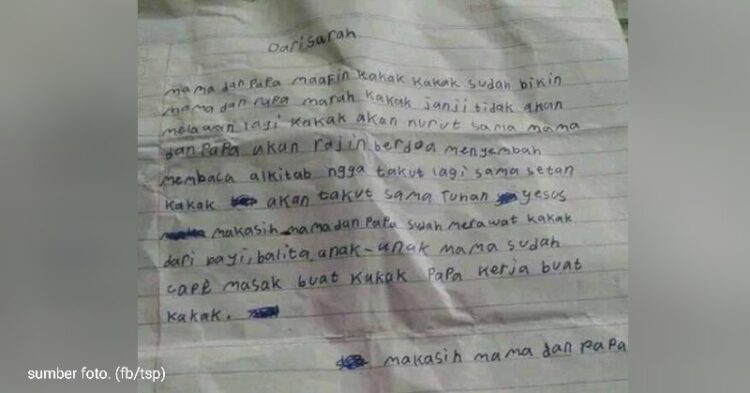 Dari sarah
mama dan PaPa maafin kakak kakak sudah bikin
mama dan papa marah kakak janji tidak akan
melawan lagi kakak akan nurut sama mama
dan PaPa akan rajin berdoa menyembah
membaca alkitab ngga takut lagi sama setan
kakak akan takut sama Tuhan yesus
makasih mama dan PaPa sudah merawat kakak
dari bayi, balita, anak-anak mama sudah
capE masak buat kakak PaPa kerja buat
kakak.
makasih mama dan PaPa
sumber foto. (fb/tsp)